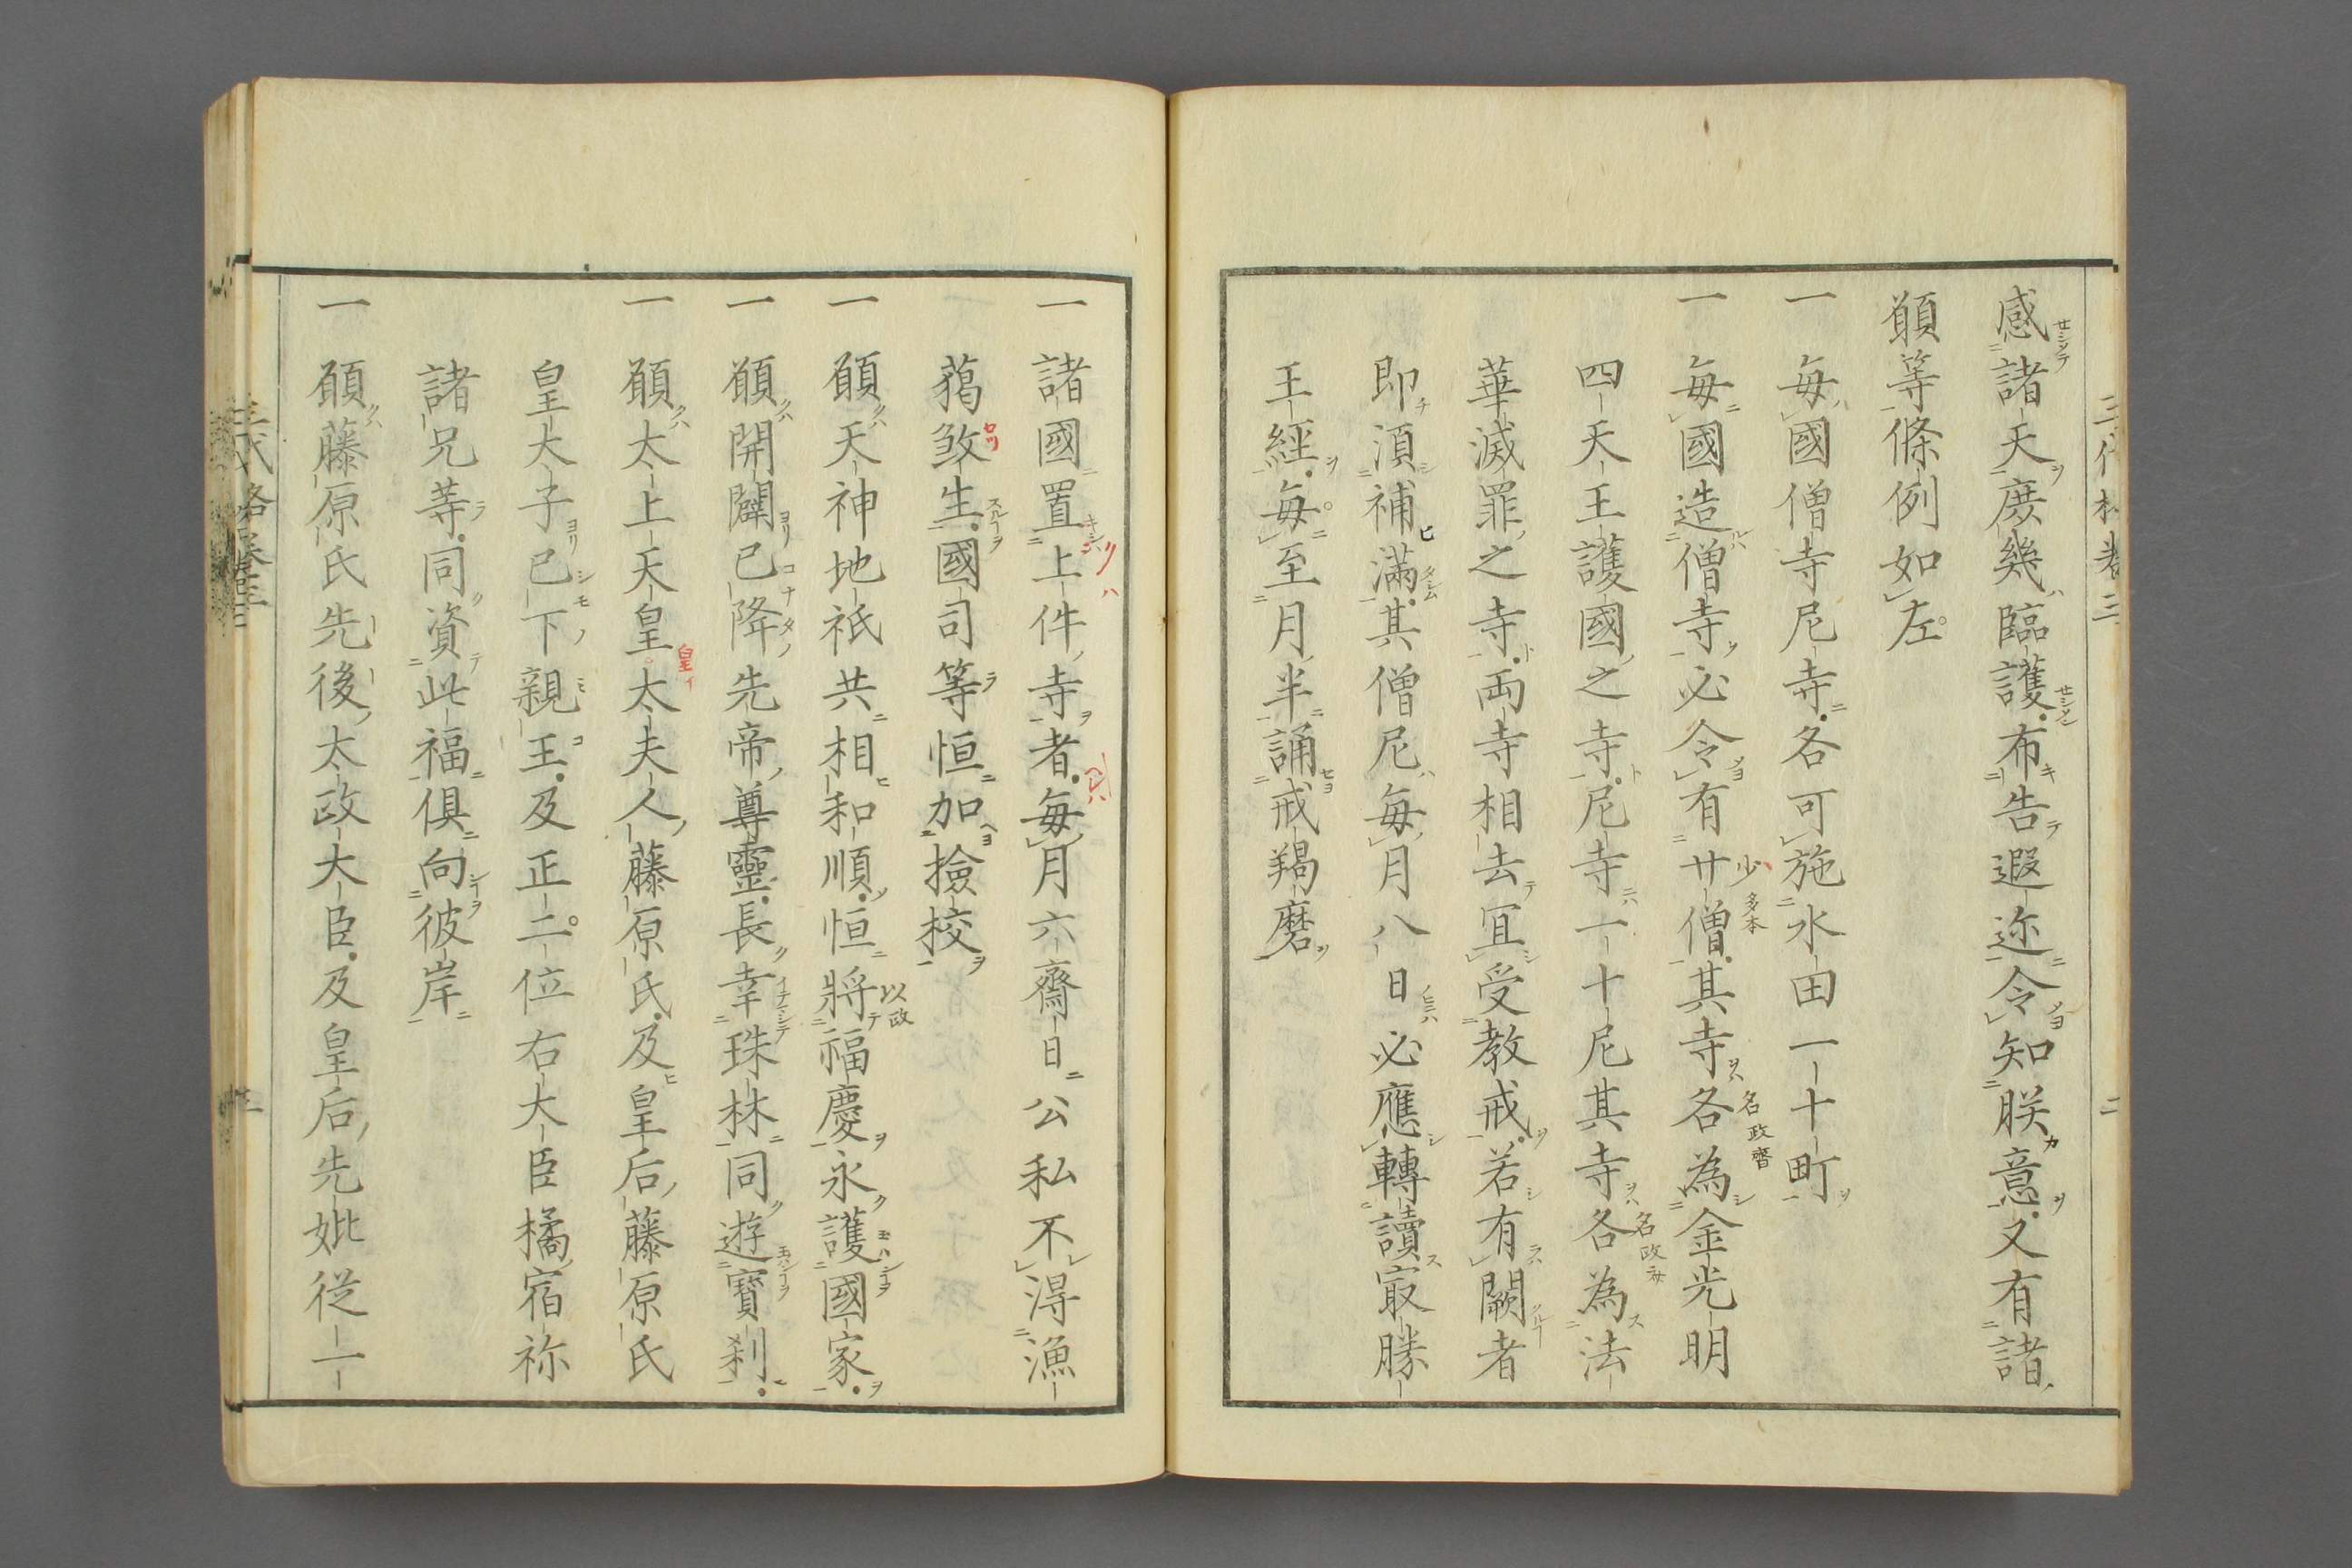 感諸天庶幾臨護布告遐迩令知朕意又有諸
願等條例如左
一 毎國僧寺尼寺各可施水田一十町
一 毎國造僧寺必令有廿僧其寺各為金光明
四天王護國之寺尼寺一十尼其寺各為法
華滅罪之寺両寺相去冝受教戒若有闕者
即湏補滿其僧尼毎月八日必應轉讀冣勝
王經毎至月半誦戒羯磨
一 諸國置上件寺者毎月六齋日公私不得漁
蒭煞生國司等恒加撿校
一 願天神地祇共相和順恒將福慶永護國家
一 願開闢已降先帝尊靈長幸珠林同遊寳刹
一 願太上天皇太夫人藤原氏及皇后藤原氏
皇大子已下親王及正二位右大臣橘宿祢
諸兄等同資此福俱向彼岸
一 願藤原氏先後太政大臣及皇后先妣従一